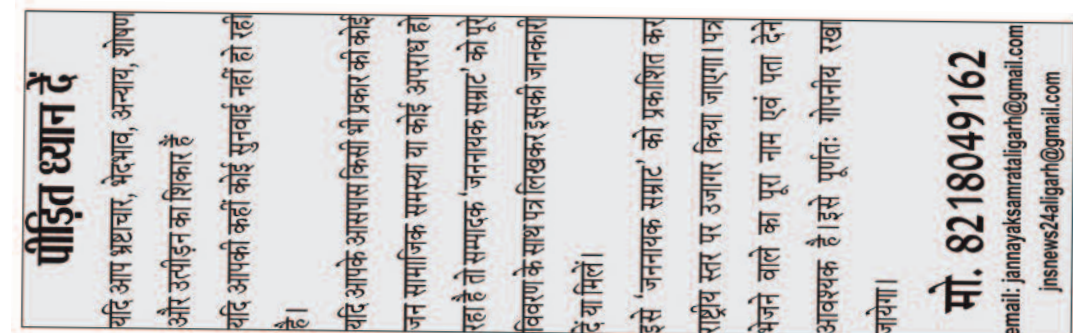 पीड़ित ध्यान दें
यदि आप भ्रष्टाचार, भेदभाव, अन्याय, शोषण
और उत्पीड़न का शिकार हैं
यदि आपकी कहीं कोई सुनवाई नहीं हो रही
है।
यदि आपके आसपास किसी भी प्रकार की कोई
जन सामाजिक समस्या या कोई अपराध हो
रहा है तो सम्पादक 'जननायक सम्राट' को पूरे
विवरण के साथ पत्र लिखकर इसकी जानकारी
दें या मिलें।
इसे 'जननायक सम्राट' को प्रकाशित कर
राष्ट्रीय स्तर पर उजागर किया जाएगा। पत्र
भेजने वाले का पूरा नाम एवं पता देने
आवश्यक है। इसे पूर्णतः गोपनीय रखा
जायेगा।
मो. 8218049162
email: jannayaksamrataligarh@gmail.com
jnsnews24aligarh@gmail.com